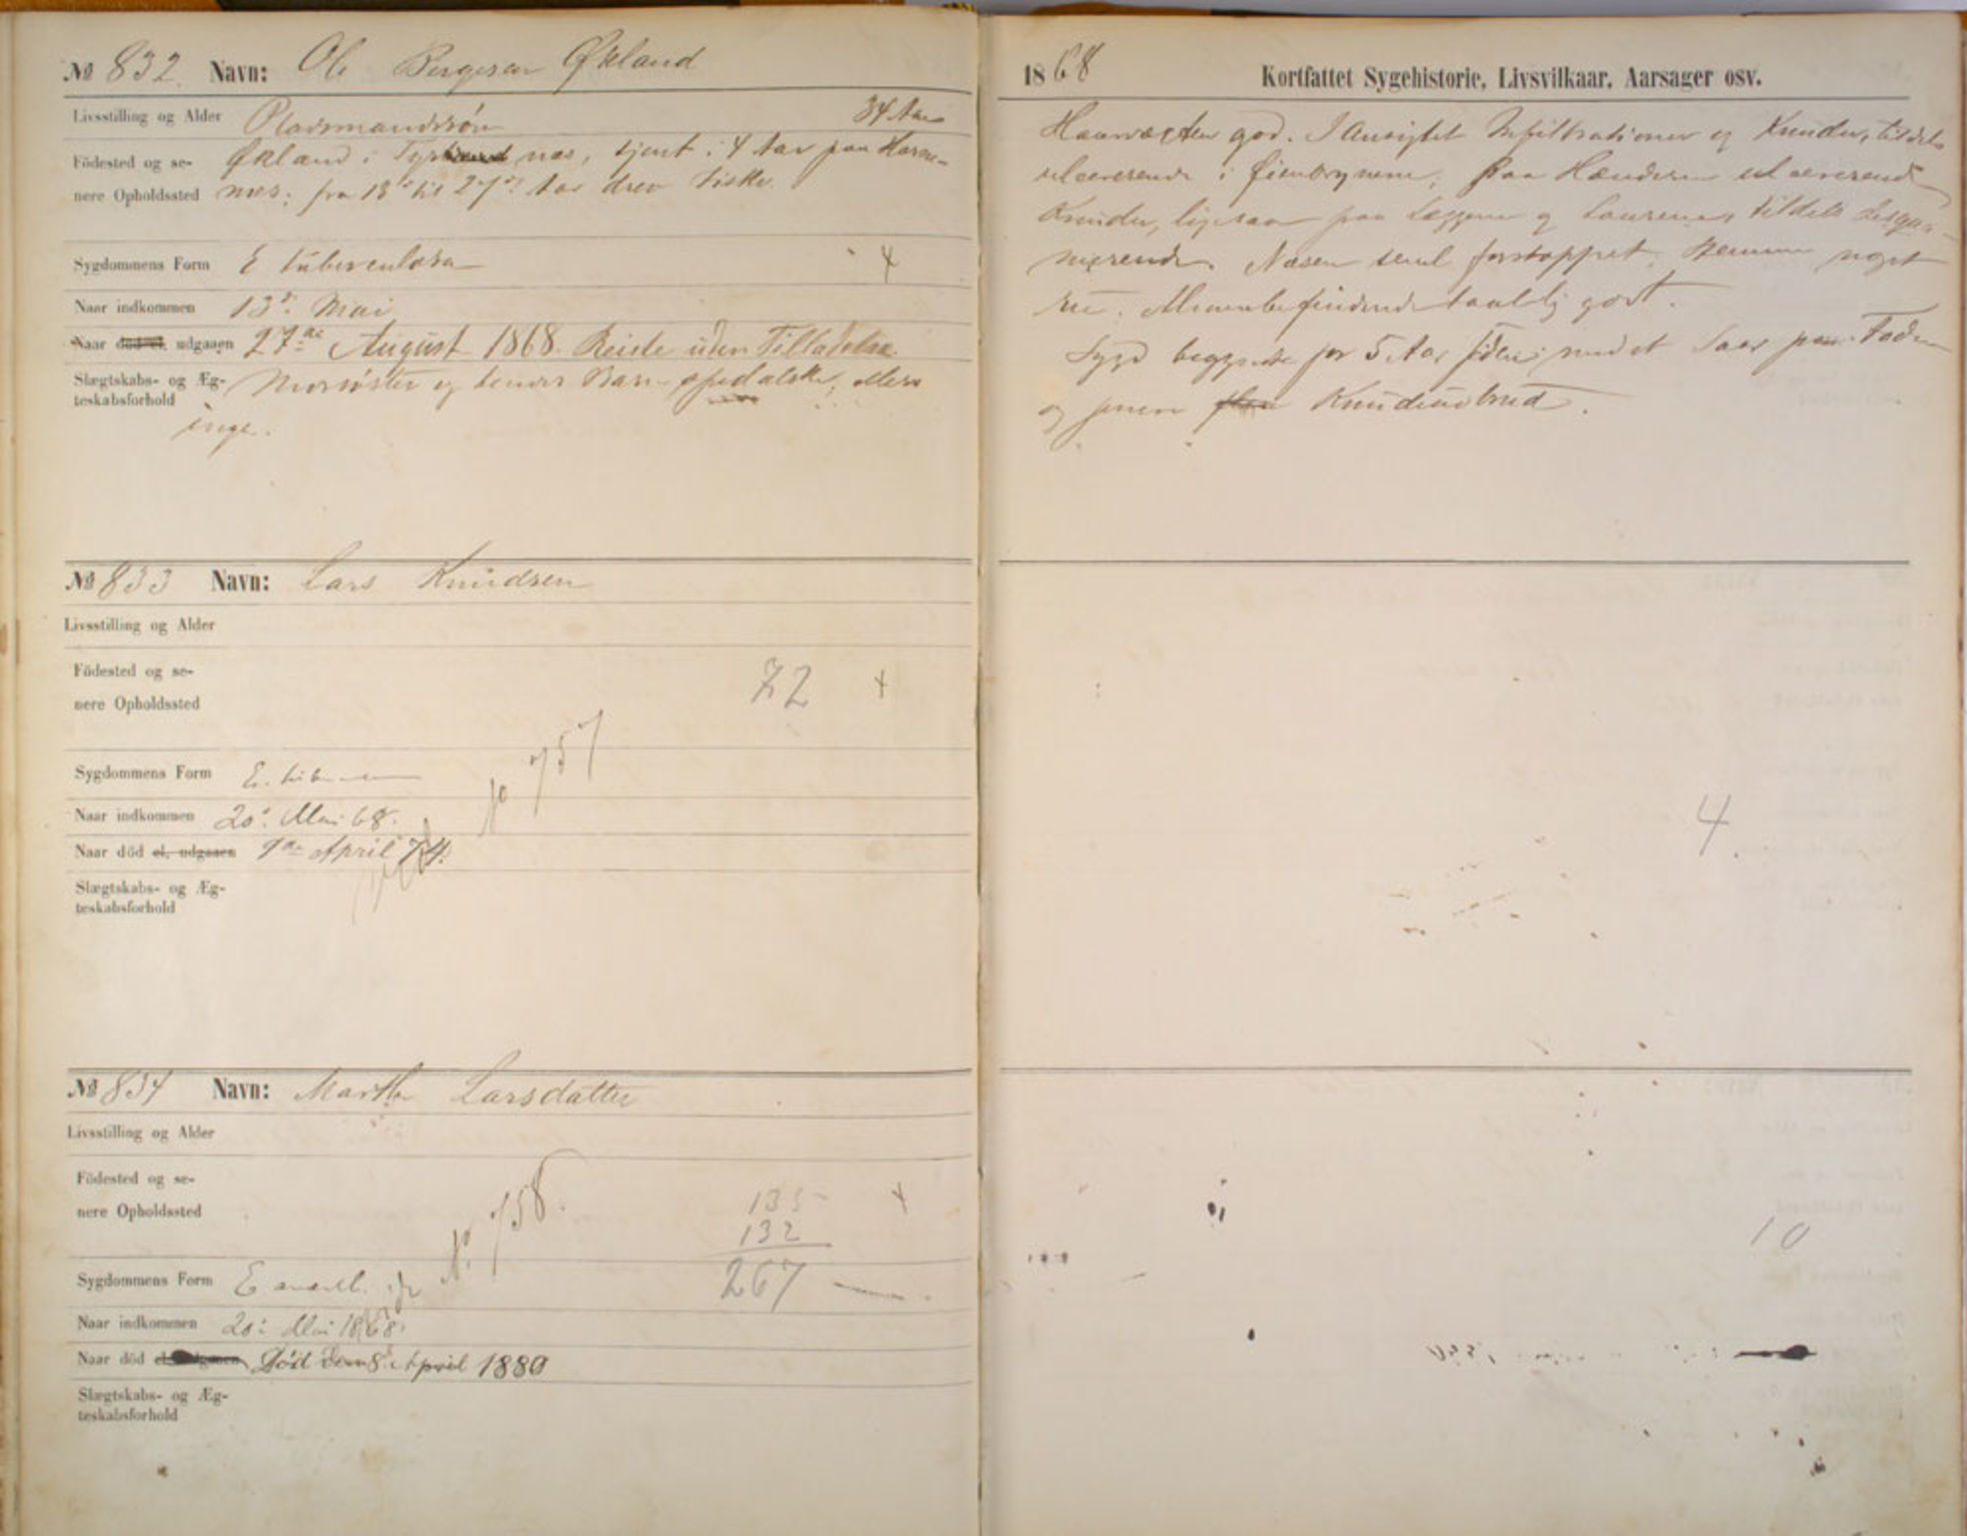 № 832 Navn: Ole Bergesen Økland
Livsstilling og Alder Pladsmandssøn 34 Aar
Födested og senere Opholdssted Økland i Tysnæs, tjent i 4 Aar paa
næs; fra 13de til 27de Aar drev Fiske.
Sygdommens Form E tuberculosa 4
Naar indkommen 13de Mai
Naar död el. udgaaen 27de August 1868. Reiste uden Tilladelse.
Slægtskabs- og Ægteskabsforhold Morsøster og hendes Barn spedalske; ellers
inge.
№ 833 Navn: Lars Knudsen
Livsstilling og Alder
Födested og senere Opholdssted 72 +
No 757
Sygdommens Form E. tub
Naar indkommen 20de Mai 68.
Naar död el. udgaaen 9de April 74.
Slægtskabs- og Ægteskabsforhold
№ 834 Navn: Marthe Larsdatter
Livsstilling og Alder
Födested og senere Opholdssted 135 +
132
No. 758.
Sygdommens Form E 267
Naar indkommen 20de Mai 1868.
Naar död el. udgaaen Död den 8de April 1880
Slægtskabs- og Ægteskabsforhold
1868 Kortfattet Sygehistorie, Livsvilkaar, Aarsager osv.
Haarvæxten god. I Ansigtet Infiltrationer og Knuder, tildels
ulcererende i Øienbrynene; paa Hænderne ulcererende
Knuder, ligesaa paa Læggene og Laarene, tildels
Næsen forstoppet. Stemmen noget
Almenbefindende taalelig godt.
Sygd. begyndte for 5 Aar siden med et Saar paa Foden
og Knudeudbrud.
4.
10